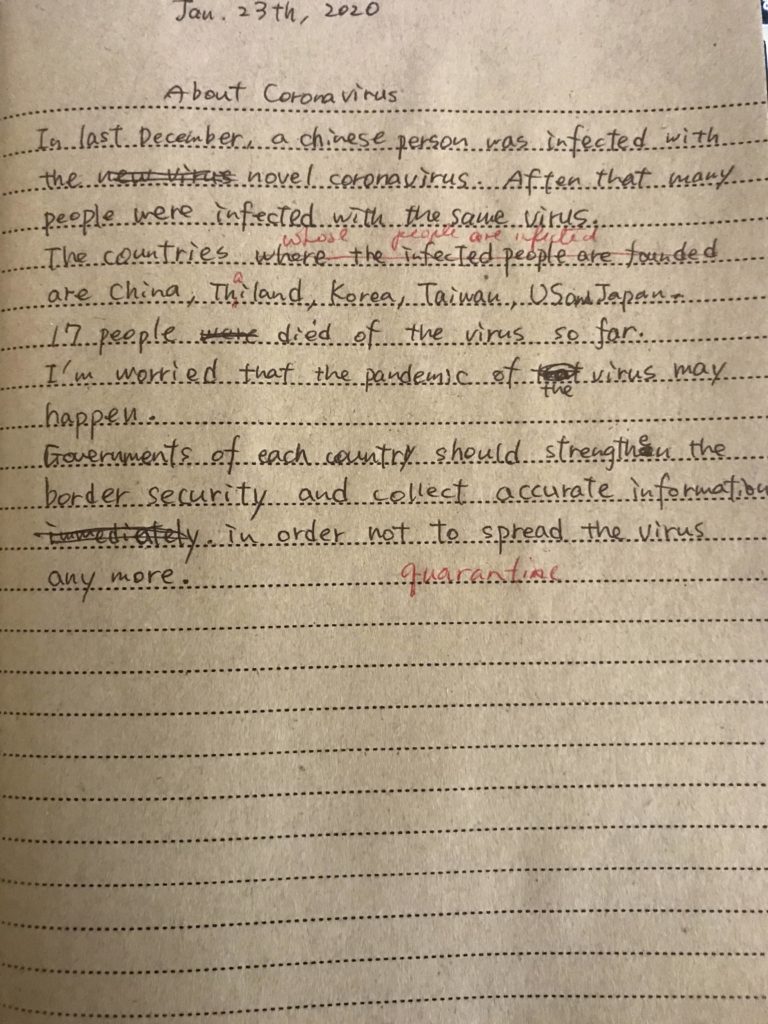 Jan. 23th, 2020
About Coronavirus
In last December, a chinese person was infected with
the new virus novel coronavirus. Aften that many
people were infected with the same virus.
whose people are infected
The countries where the infected people are founded
a
are China, Thiland, Korea, Taiwan, US and Japan.
17 people were died of the virus so far.
I'm worried that the pandemic of virus may
the
happen.
Governments of each country should strengthen the
border security and collect accurate information
immediately. in order not to spread the virus
any more.
quarantine